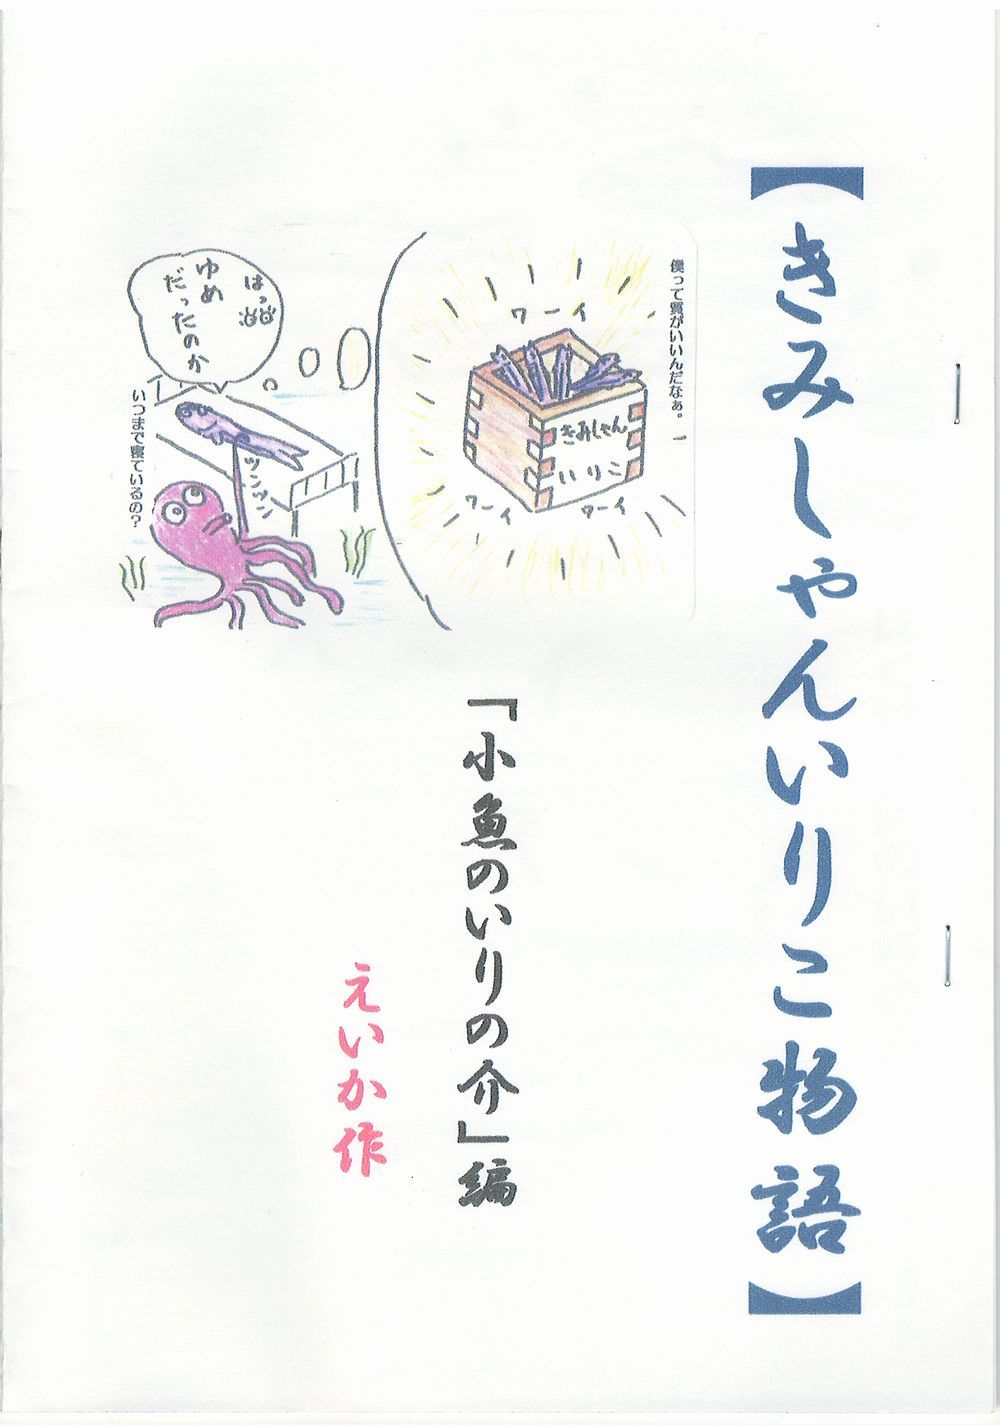 【きみしゃんいりこ物語】
僕って質がいいんだなぁ。
ワーイ
きみしゃん
いりこ
ワーイ
ワーイ
はっ
ゆめ
だったのか
ツンツン
いつまで寝ているの？
「小魚のいりの介」編
えいか作